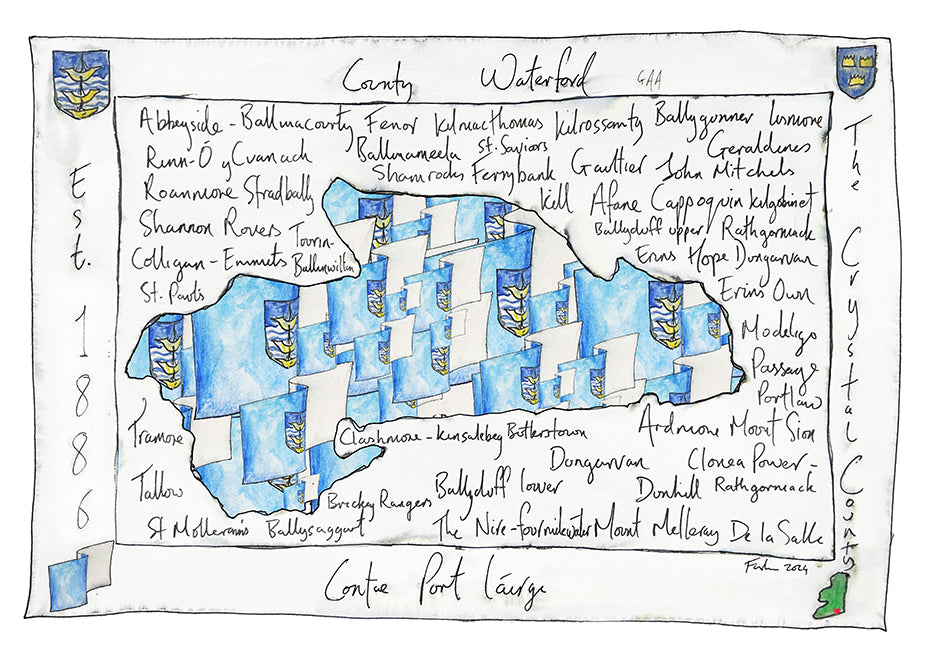 County Waterford GAA
Est. 1886
The Crystal County
Abbeyside - Ballinacourty Fenor Kilmacthomas Kilrossanty Ballygunner Lismore
Rinn-Ó gCuanach Ballinameela St. Saviors Geraldines
Shamrocks Ferrybank Gaultier John Mitchels
Roanmore Stradbally Kill Affane Cappoquin Kilgobinet
Shannon Rovers Ballyduff upper Rathgormack
Tourin-
Ballinwillin
Colligan - Emmets Erins Hope Dungarvan
St. Pauls Erins Own
Modeligo
Passage
Portlaw
Tramore Clashmore - Kinsalebeg Butlerstown Ardmore Mount Sion
Dungarvan Clonea Power -
Tallow Brickey Rangers Ballyduff lower Dunhill Rathgormack
St Mollerans Ballysaggart The Nire-fourmilewater Mount Melleray De la Salle
2024
Contae Port Láirge